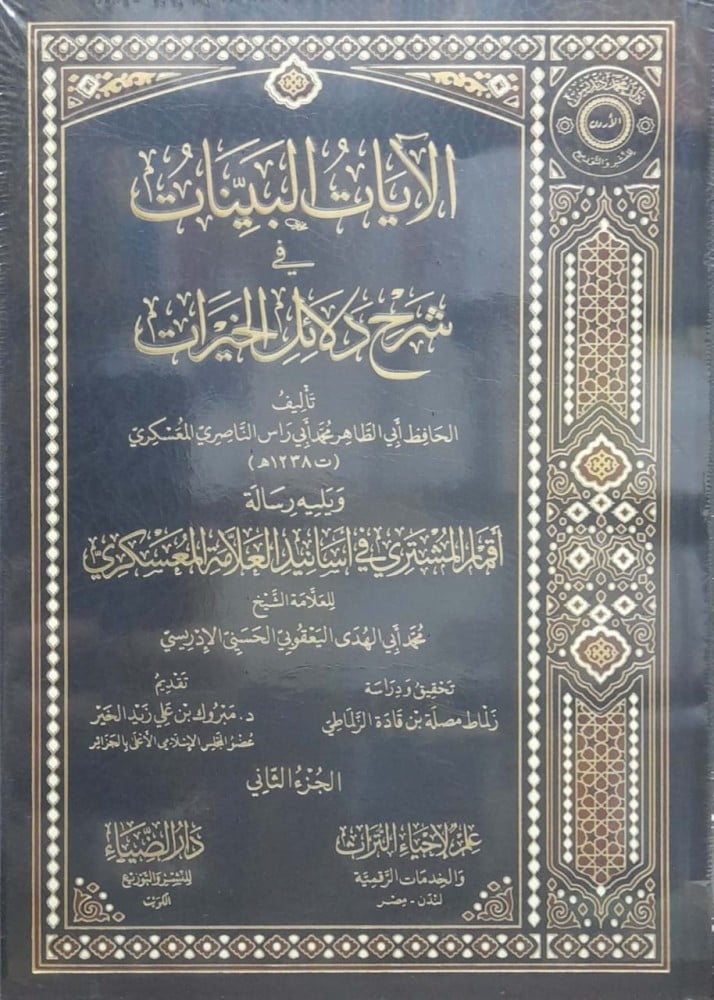 الآيَاتُ البَيِّنَاتُ
في
شَرْحِ دَلَائِلِ الخَيْرَاتِ
تَأْلِيفُ
الحَافِظِ أَبِي الطَّاهِرِ مُحَمَّد أَبِي رَاس النَّاصِرِيِّ المُعَسْكَرِيِّ
(ت ١٢٣٨ هـ)
وَيَلِيهِ رِسَالَة
أَقْمَارُ المُشْتَرِي فِي أَسَانِيدِ العَلَّامَةِ المُعَسْكَرِيِّ
لِلعَلَّامَة الشَّيْخ
مُحَمَّد أَبِي الهُدَى اليَعْقُوبِيّ الحَسَنِيّ الإِدْرِيسِيّ
تَحْقِيق وَدِرَاسَة
زلماط مصلة بن قادة الزلماطي
تَقْدِيمُ
د. مَبْرُوك بن عَلِي زَيْد الخَيْر
عُضْو المَجْلِس الإِسْلَامِي الأَعْلَى بِالجَزَائِر
الجُزْءُ الثَّانِي
عِلْم لِإِحْيَاءِ التُّرَاث
وَالخِدمَات الرَّقمِيَّة
لَنْدَن - مِصْر
دَارُ الضِّيَاءِ
لِلنَّشْرِ وَالتَّوْزِيع
الكُوَيْت
الأردن
للنشر والتوزيع